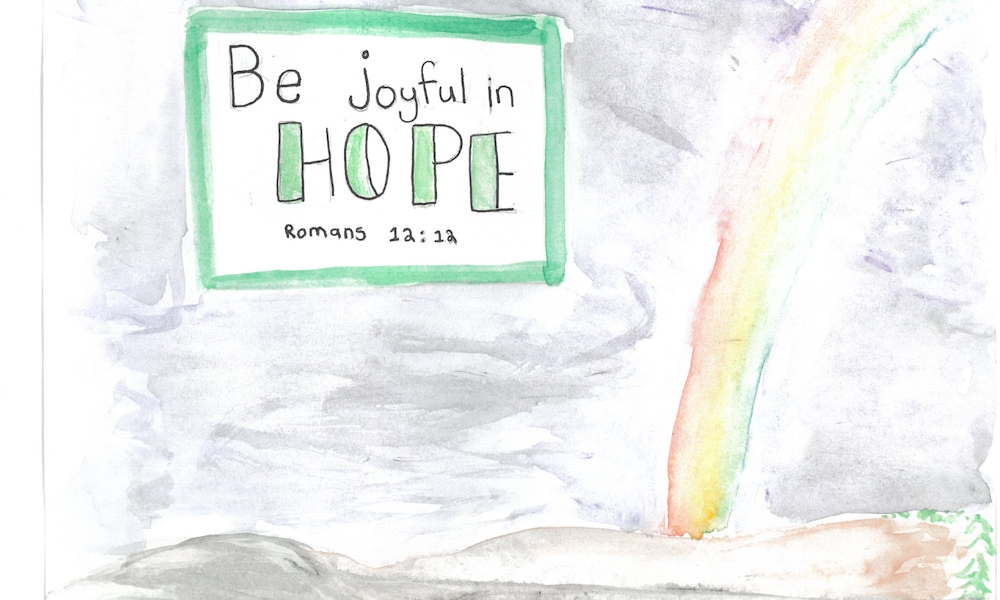 Be joyful in
HOPE
Romans 12:12